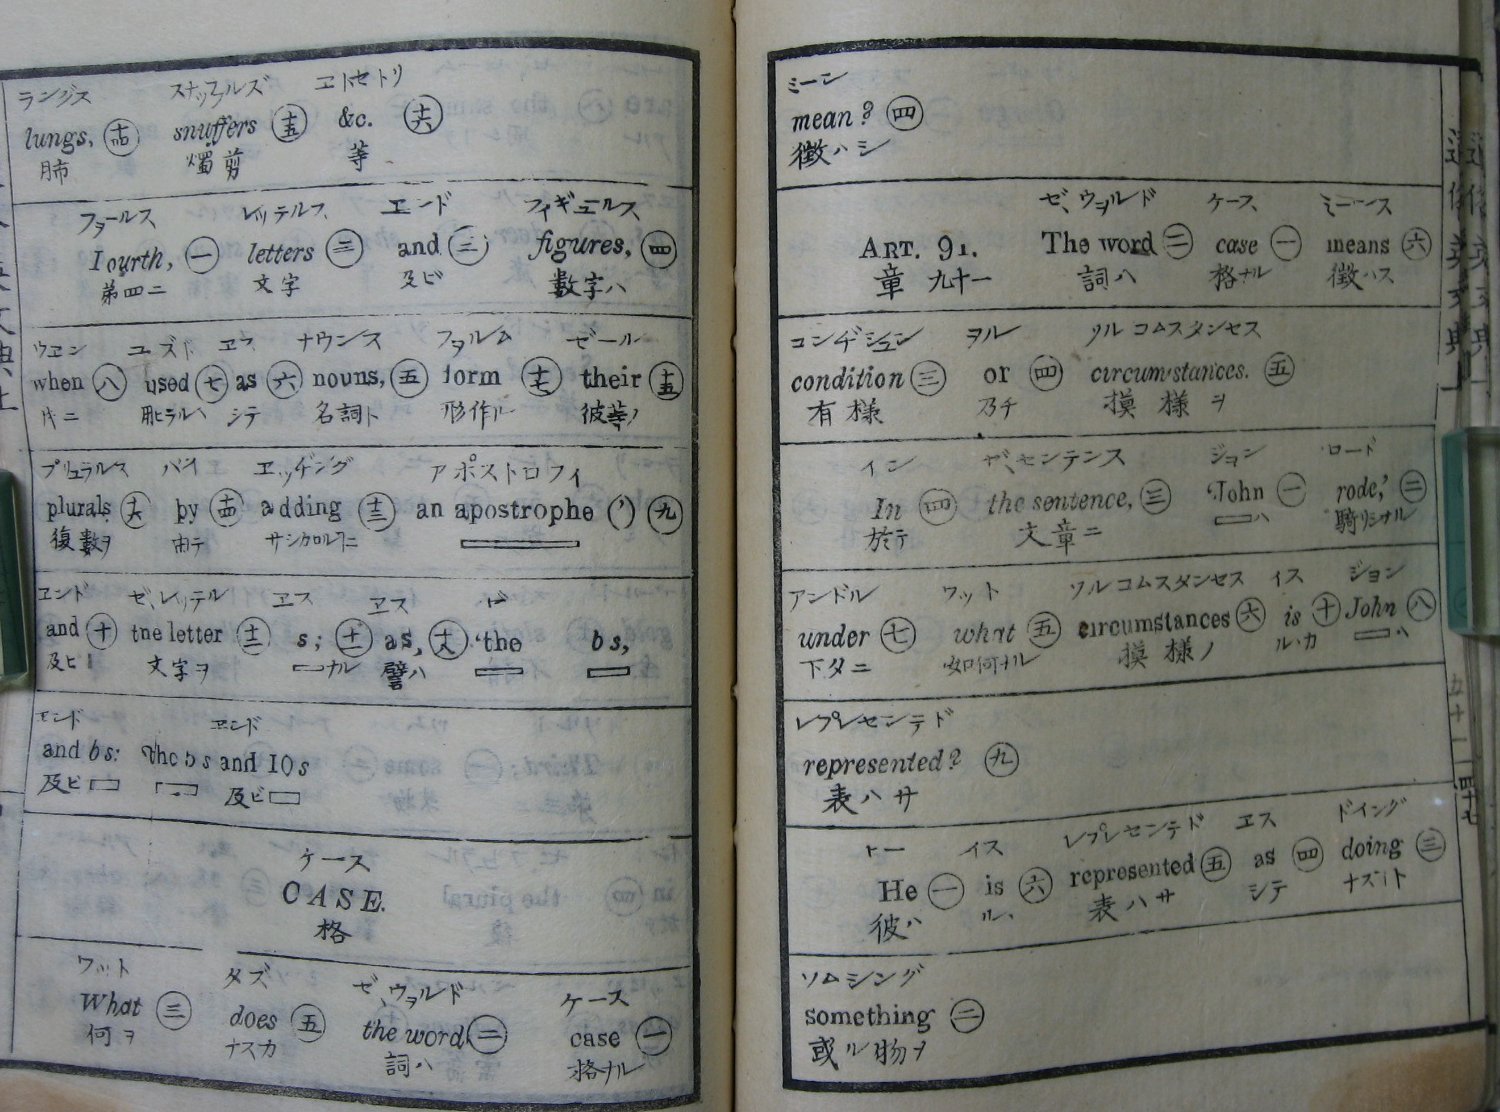 ラングス スナッフルズ ヱトセトリ
lungs, 十四 snuffers 十五 &c. 十六
肺 燭剪 等
フォールス レッテルス ヱンド フィギュールス
Fourth, 一 letters 二 and 三 figures, 四
第四ニ 文字 及ビ 數字ハ
ウヱン ユーズド ヱス ナウンス フォルム ゼール
when 八 used 七 as 六 nouns, 五 form 十七 their 十五
件ニ 用ヒラルヽ シテ 名詞ト 形作ル 彼等ノ
プリュラルス バイ ヱッヂング アポストロフィ
plurals 十六 by 十四 adding 十三 an apostrophe (’) 九
復數ヲ 由テ
ヱンド ゼ、レッテル ヱス ヱス ゼ
and 十 the letter 十二 s; 十一 as, 十八 ‘the bs,
及ビ 文字ヲ ナル 譬ハ
ヱンド ヱンド
and bs: the bs and 10s
及ビ 及ビ
ケース
CASE.
格
ワット ダズ ゼ、ウォルド ケース
What 三 does 五 the word 二 case 一
何ヲ ナスカ 詞ハ 格ナル
ミーン
mean? 四
徴ハシ
ゼ、ウォルド ケース ミーンス
ART. 91. The word 二 case 一 means 六
章 九十一 詞ハ 格ナル 徴ハス
コンヂション ヲル ソルコムスタンセス
condition 三 or 四 circumstances. 五
有様 乃チ 摸様ヲ
イン ゼ、センテンス ジョン ロード
In 四 the sentence, 三 ‘John 一 rode,’ 二
於テ 文章ニ ハ 騎リシナル
アンドル ワット ソルコムスタンセス イス ジョン
under 七 what 五 circumstances 六 is 十 John 八
下タニ 如何ナル 摸様ノ ルヽカ ハ
レプレセンテド
represented? 九
表ハサ
ヒー イス レプレセンテド ヱス ドイング
He 一 is 六 represented 五 as 四 doing 三
彼ハ ルヽ 表ハサ シテ ナスト
ソムシング
something 二
或ル物ヲ